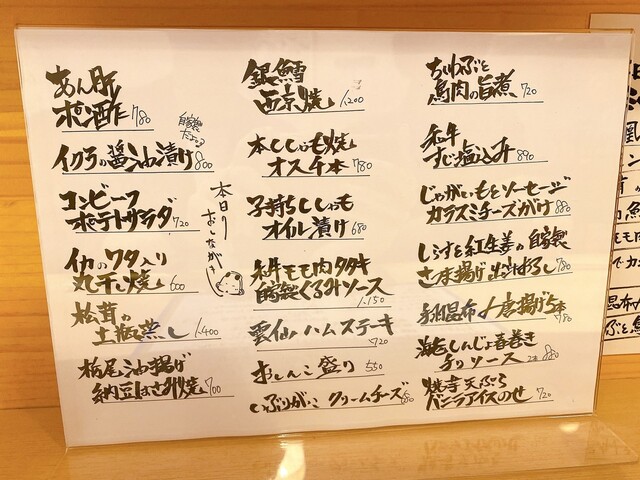 あん肝
ポン酢 780
イクラの醤油漬け 800
自家製
コンビーフ
ポテトサラダ 720
イカのワタ入り
丸干し焼 600
松茸の
土瓶蒸し 1.400
栃尾油揚げ
納豆はさみ焼 700
本日の
おしながき
銀鱈
西京焼 1200
本ししゃも焼
オス4本 780
子持ちししゃも
オイル漬け 680
和牛もも肉タタキ
自家製くるみソース
1.150
雲仙ハムステーキ
720
おしんこ盛り 550
いぶりがっこクリームチーズ 680
ちくわぶと
鳥肉の旨煮 720
和牛
すじ塩込み 890
じゃがいもとソーセージ
カラスミチーズがけ 880
しらすと紅生姜の自家製
さつま揚げ 出汁おろし 780
唐揚げ5本
780
海老しんじょ春巻き
チリソース 2本 880
焼芋天ぷら
バニラアイスのせ 720